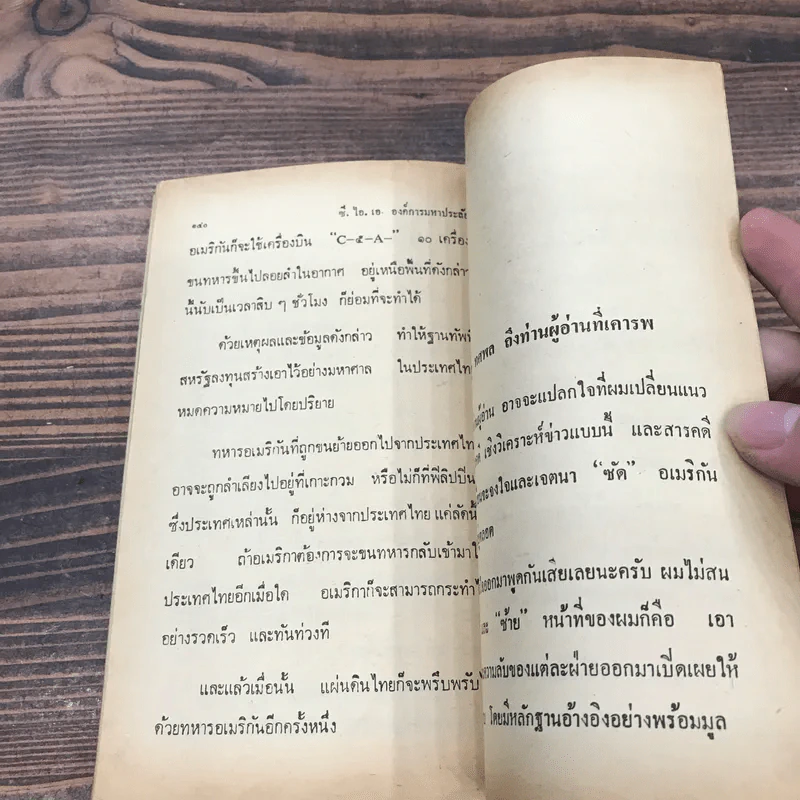 ๑๔๐
ซี. ไอ. เอ. องค์การมหาประลัย
อเมริกันก็จะใช้เครื่องบิน “C–๕–A–” ๑๐ เครื่อง
ขนทหารขึ้นไปลอยลำในอากาศ อยู่เหนือพื้นที่ดังกล่าว
นี้นับเป็นเวลาสิบ ๆ ชั่วโมง ก็ย่อมที่จะทำได้
ด้วยเหตุผลและข้อมูลดังกล่าว ทำให้ฐานทัพที่
สหรัฐลงทุนสร้างเอาไว้อย่างมหาศาล ในประเทศไทย
หมดความหมายไปโดยปริยาย
ทหารอเมริกันที่ถูกขนย้ายออกไปจากประเทศไทย
อาจจะถูกลำเลียงไปอยู่ที่เกาะกวม หรือไม่ก็ที่ฟิลิปปิน
ซึ่งประเทศเหล่านั้น ก็อยู่ห่างจากประเทศไทย แค่ลัดนิ้
เดียว ถ้าอเมริกาต้องการจะขนทหารกลับเข้ามาใ
ประเทศไทยอีกเมื่อใด อเมริกาก็จะสามารถกระทำไ
อย่างรวดเร็ว และทันท่วงที
และแล้วเมื่อนั้น แผ่นดินไทยก็จะพรึบพรับ
ด้วยทหารอเมริกันอีกครั้งหนึ่ง
ทศพล ถึงท่านผู้อ่านที่เคารพ
ผู้อ่าน อาจจะแปลกใจที่ผมเปลี่ยนแนว
เชิงวิเคราะห์ข่าวแบบนี้ และสารคดี
จงใจและเจตนา “ซัด” อเมริกัน
ตลอด
ออกมาพูดกันเสียเลยนะครับ ผมไม่สน
และ “ซ้าย” หน้าที่ของผมก็คือ เอา
ความลับของแต่ละฝ่ายออกมาเปิดเผยให้
โดยมีหลักฐานอ้างอิงอย่างพร้อมมูล